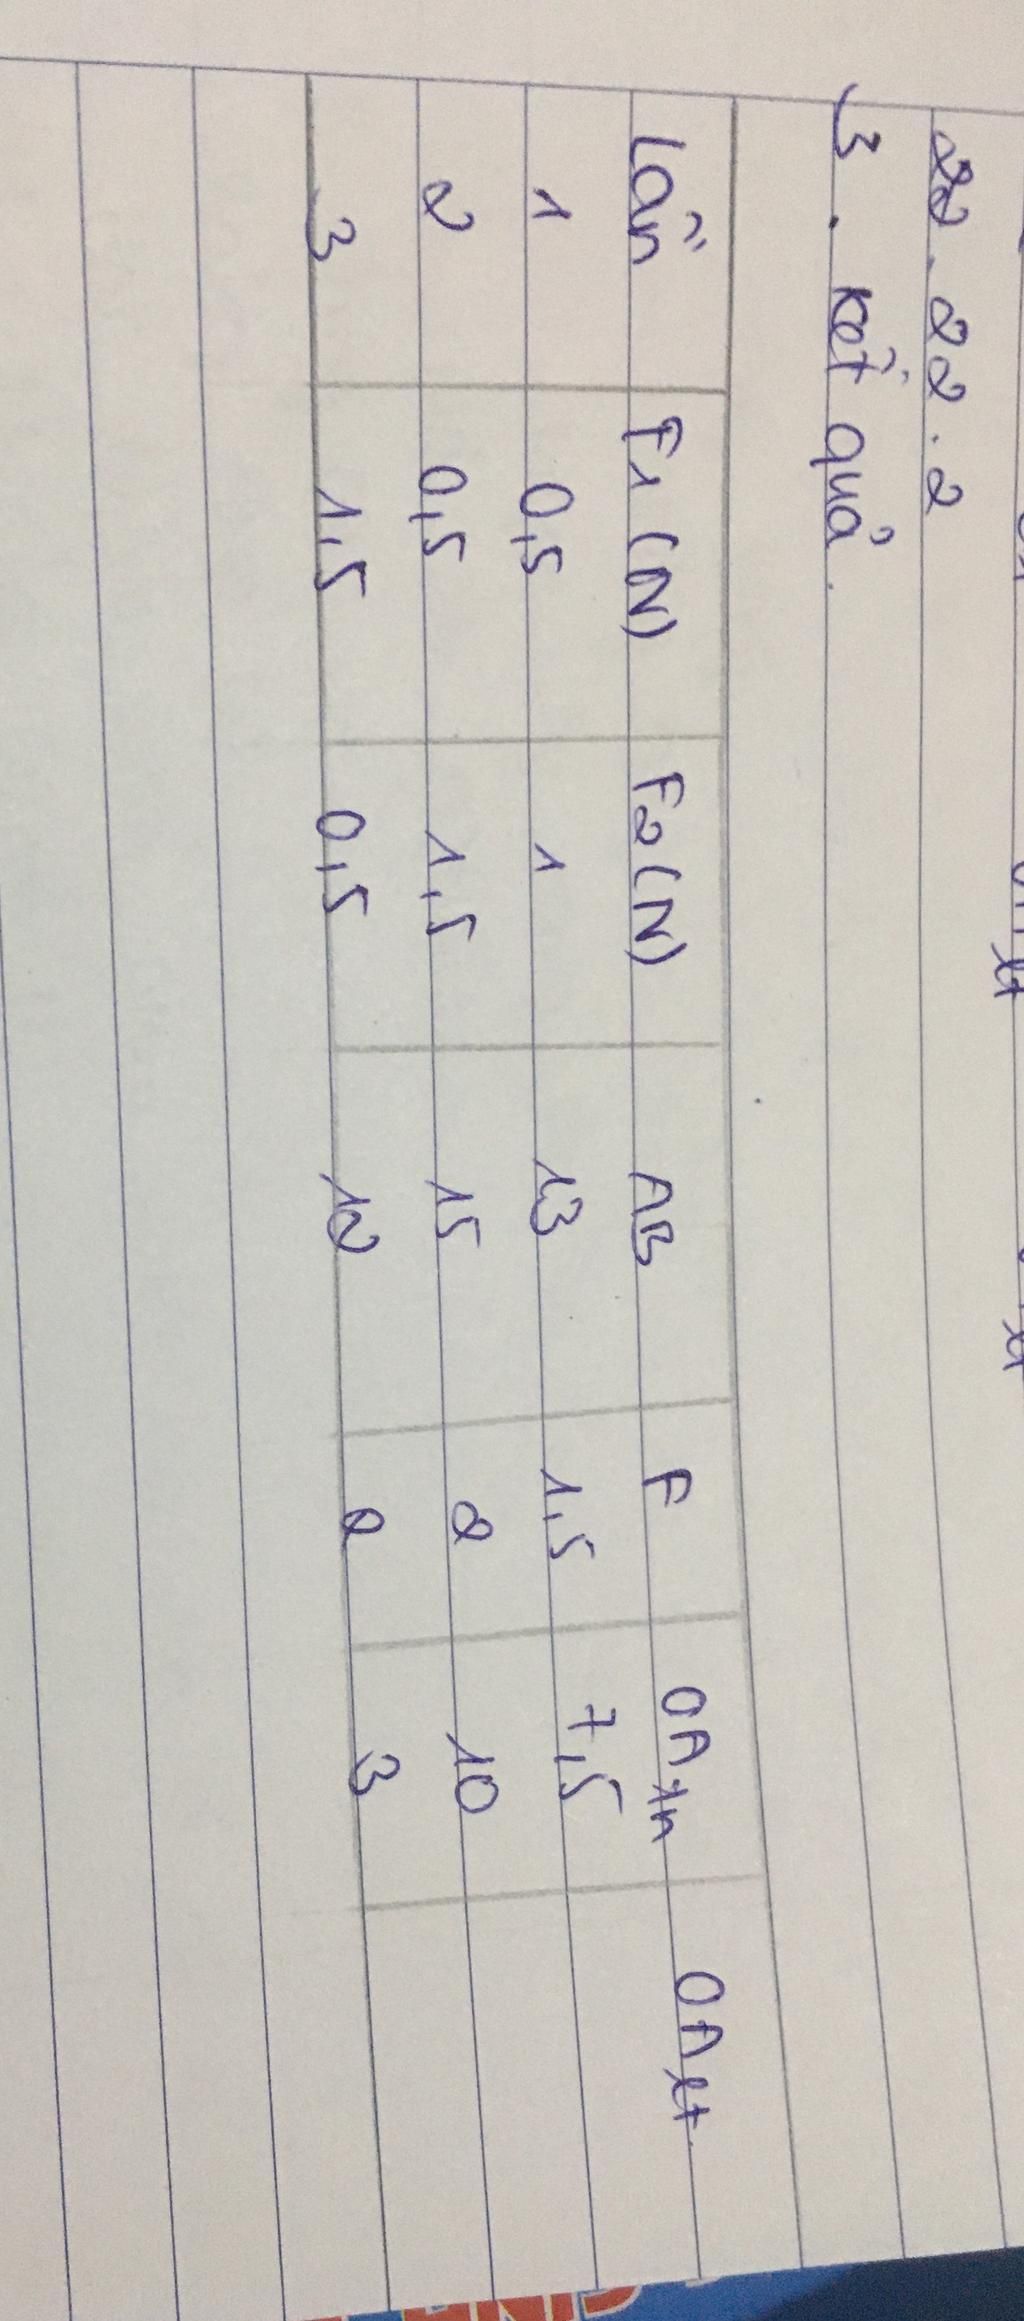 22.22.2
3. Kết quả.
Lần F1 (N) F2 (N) AB F OA tn OA lt
1 0,5 1 13 1,5 7,5
2 0,5 1,5 15 2 10
3 1,5 0,5 12 2 3